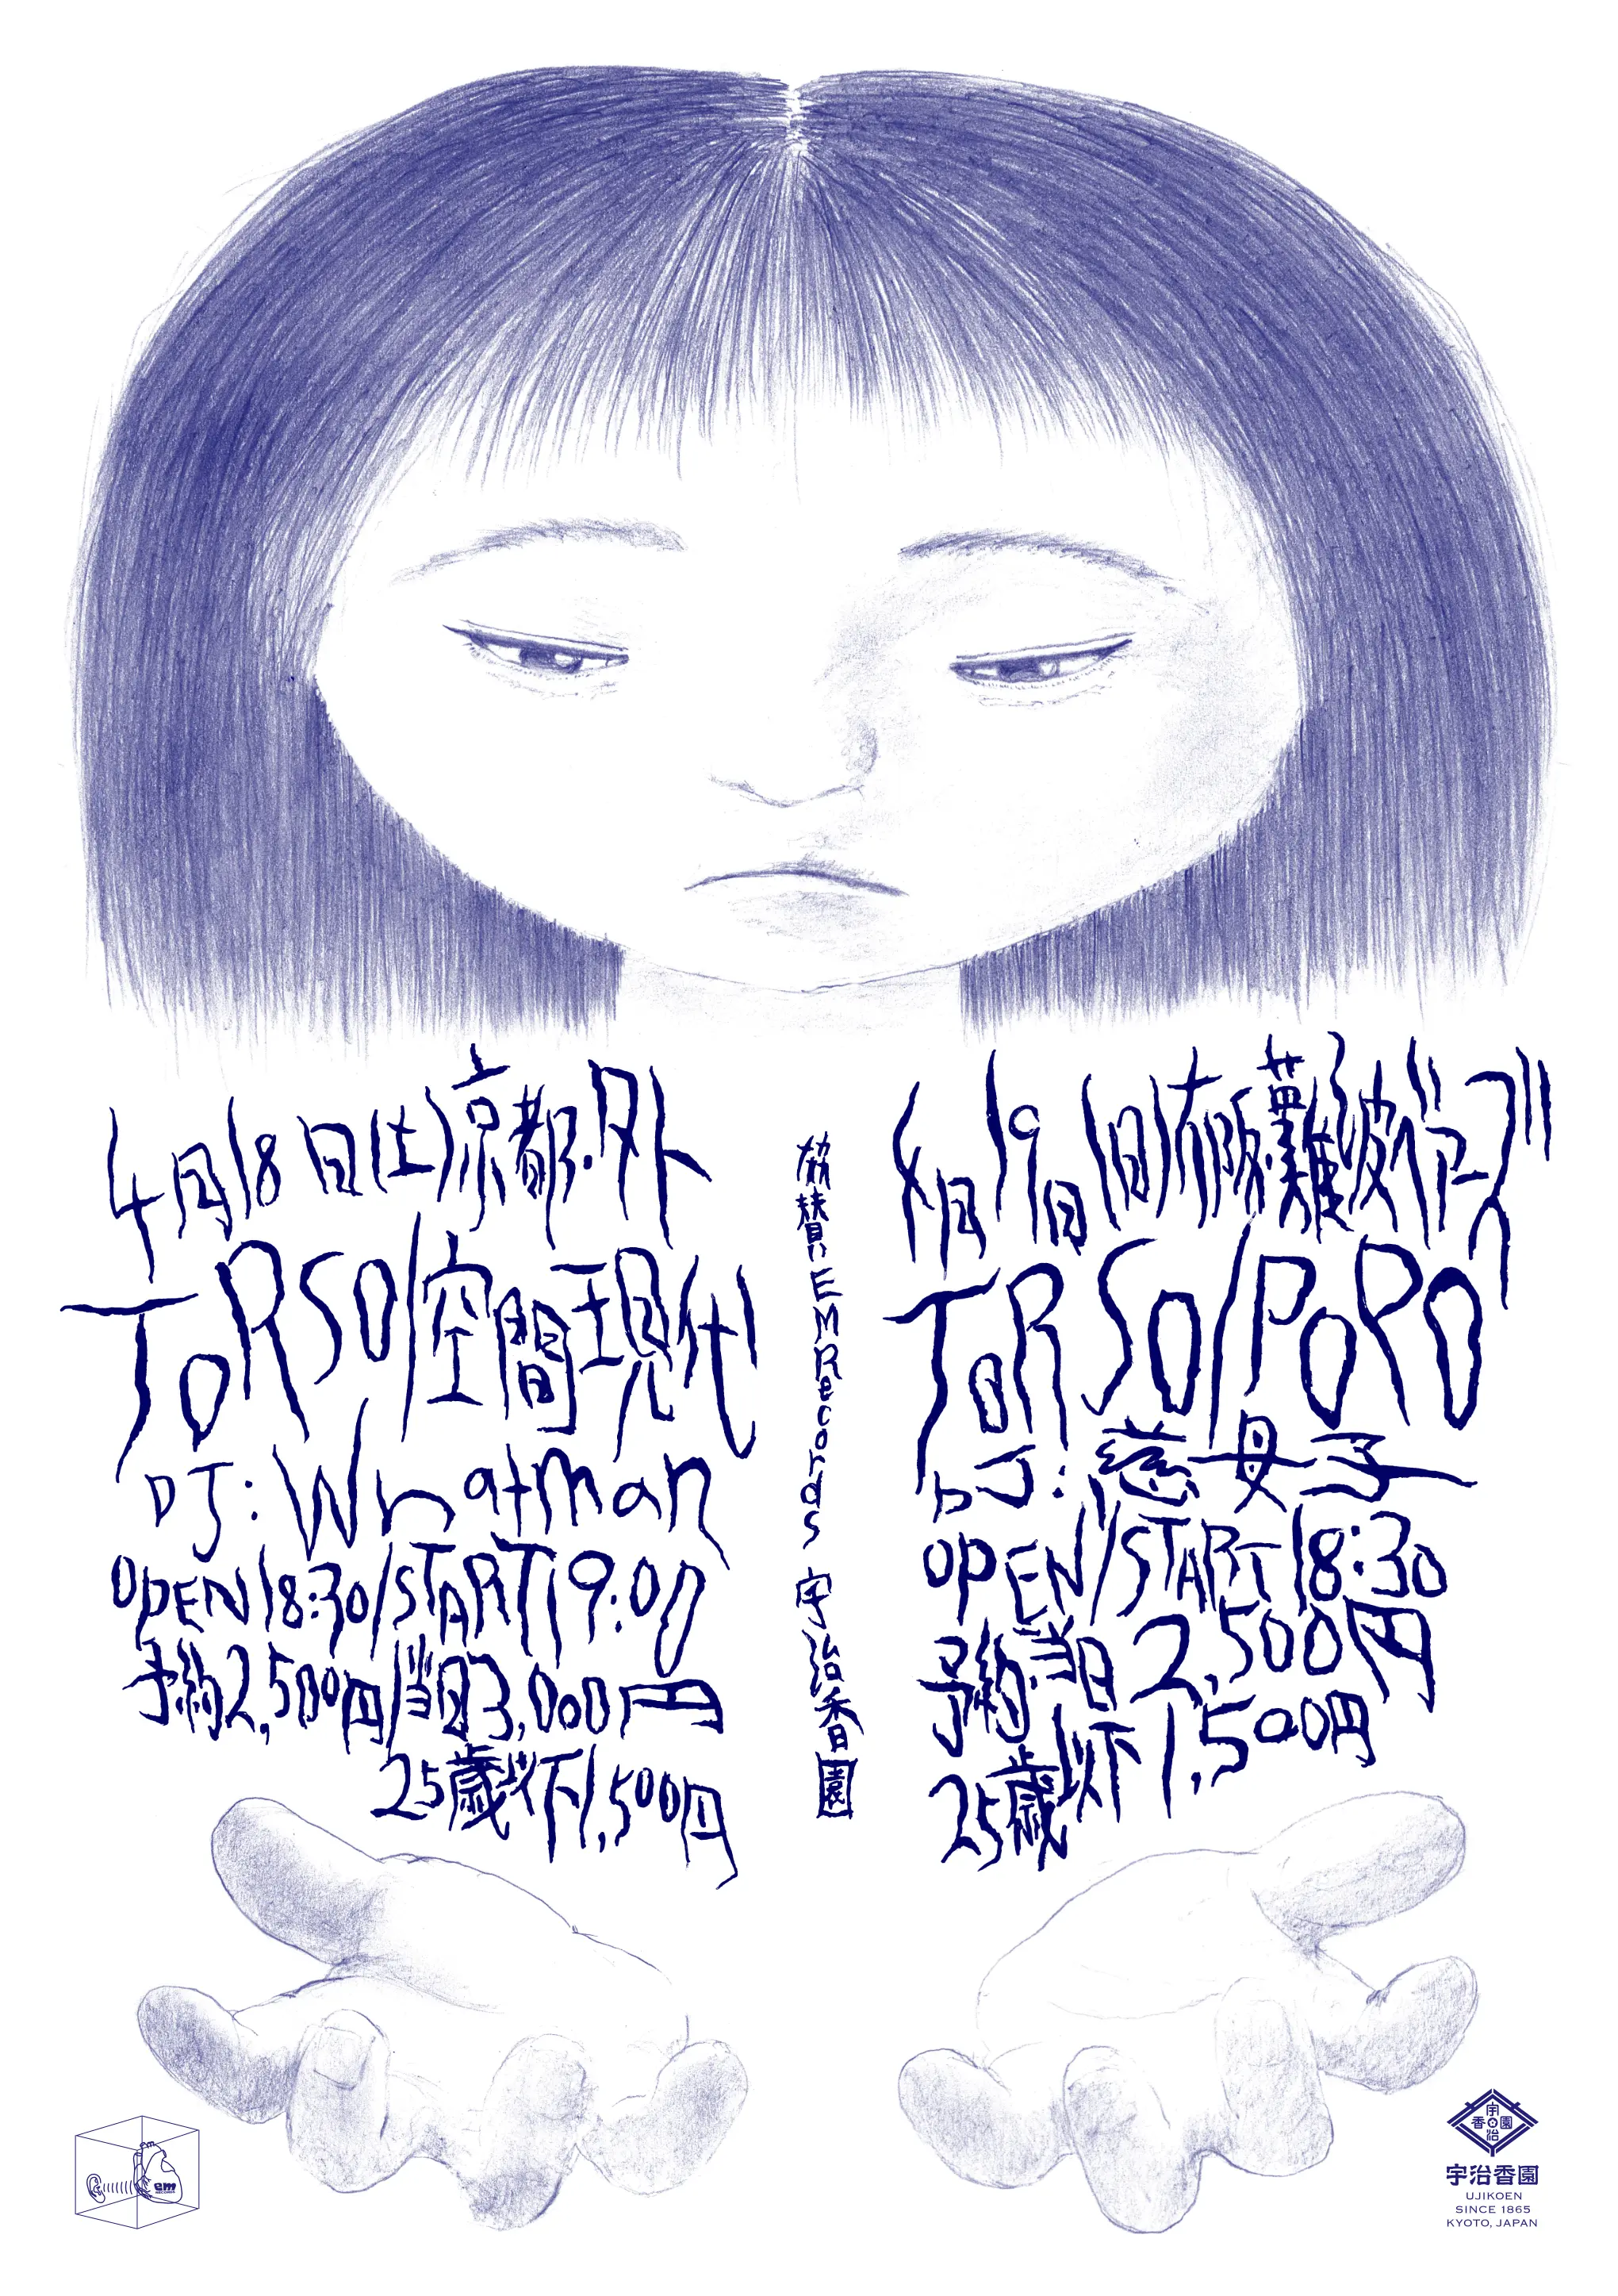 4月18日(土)京都・外
TORSO/空間現代
DJ:Whatman
OPEN18:30/START19:00
予約2,500円/当日3,000円
25歳以下1,500円
協賛 EM Records 宇治香園
4月19日(日)大阪・難波ベアーズ
TORSO/POPO
DJ:慈母子
OPEN/START18:30
予約・当日2,500円
25歳以下1,500円
em
RECORDS
宇治香園
宇治香園
UJIKOEN
SINCE 1865
KYOTO, JAPAN